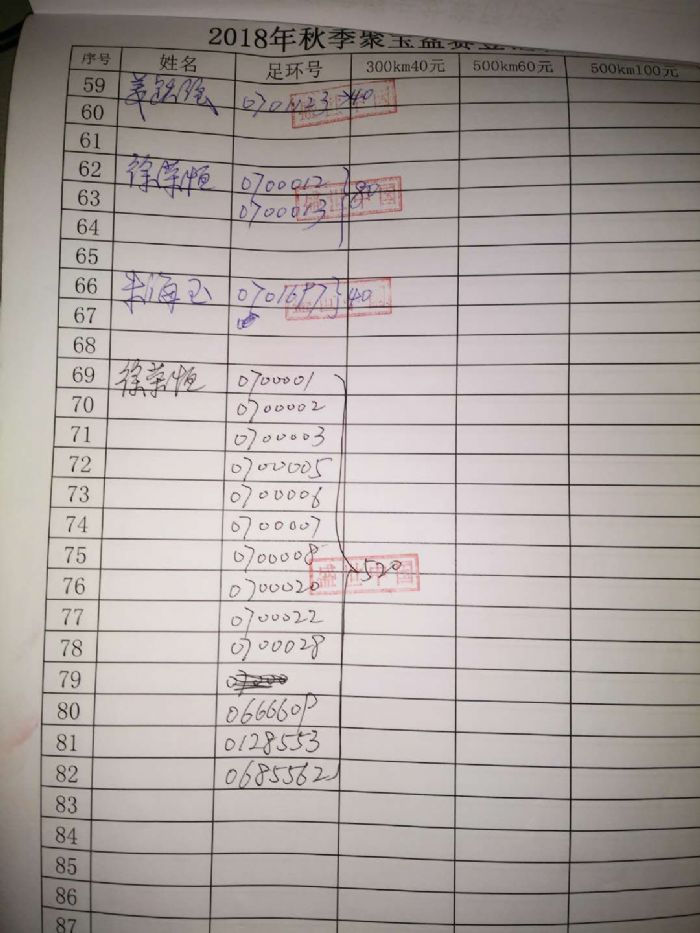 2018年秋季聚宝盆赛登记
序号 姓名 足环号 300km40元 500km60元 500km100元
59
60 0701123 40
61
62 徐荣恒 0700012
63 0700013 80
64
65
66 朱海玉 0701697 40
67
68
69 徐荣恒 0700001
70 0700002
71 0700003
72 0700005
73 0700006
74 0700007
75 0700008
76 0700020 520
77 0700022
78 0700028
79
80 066660P
81 0128553
82 0685562
83
84
85
86
87